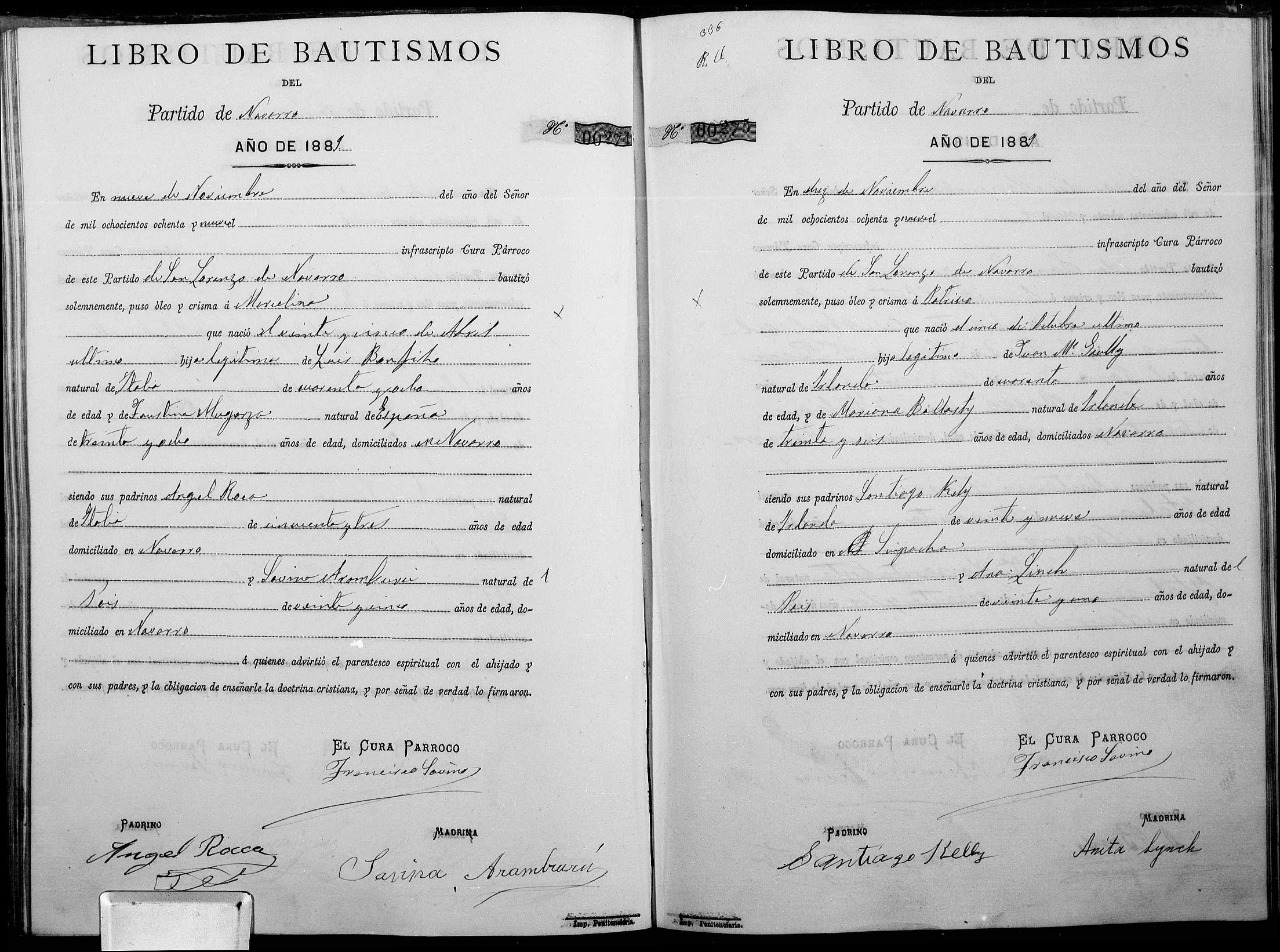 LIBRO DE BAUTISMOS
DEL
Partido de Navarro
Nº 00274
AÑO DE 1889
En nueve de Noviembre del año del Señor
de mil ochocientos ochenta y nueve el
infrascripto Cura Párroco
de este Partido de San Lorenzo de Navarro bautizó
solemnemente, puso óleo y crisma á Marcelina
que nació el veinte y cinco de Abril
ultimo hija legitima de Luis
natural de Italia de cuarenta y ocho años
de edad y de Faustina Mugarza natural de España
de treinta y ocho años de edad, domiciliados en Navarro
siendo sus padrinos Angel Roca natural
de Italia de cincuenta y tres años de edad
domiciliado en Navarro
y Savina Aramburu natural de l
Pais de veinte y cinco años de edad, do-
miciliado en Navarro
á quienes advirtió el parentesco espiritual con el ahijado y
con sus padres, y la obligacion de enseñarle la doctrina cristiana, y por señal de verdad lo firmaron.
EL CURA PARROCO
Francisco Savino
PADRINO
MADRINA
Angel Rocca
Savina Aramburú
Imp. Penitenciaria.
006
LIBRO DE BAUTISMOS
DEL
Partido de Navarro
Nº 00275
AÑO DE 1889
En diez de Noviembre del año del Señor
de mil ochocientos ochenta y nueve el
infrascripto Cura Párroco
de este Partido de San Lorenzo de Navarro bautizó
solemnemente, puso óleo y crisma á Patricio
que nació el cinco de Octubre ultimo
hijo legitimo de Juan Mc
natural de Irlanda de cuarenta años
de edad, y de Mariana natural de Irlanda
de treinta y seis años de edad, domiciliados Navarro
siendo sus padrinos Santiago Kely natural
de Irlanda de veinte y nueve años de edad
domiciliado en
y Ana Linch natural de l
Pais de veinte y uno años de edad, do-
miciliado en Navarro
á quienes advirtió el parentesco espiritual con el ahijado y
con sus padres, y la obligacion de enseñarle la doctrina cristiana, y por señal de verdad lo firmaron.
EL CURA PARROCO
Francisco Savino
PADRINO
MADRINA
Santiago Kelly
Anita Lynch
Imp. Penitenciaria.